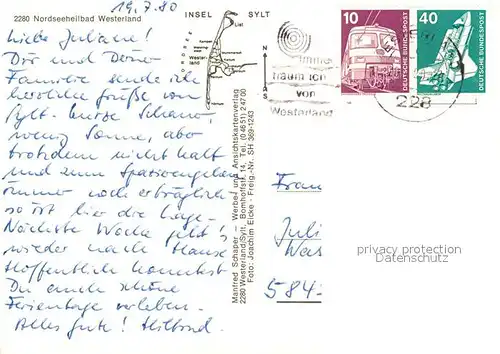 19.7.80
2280 Nordseeheilbad Westerland
Liebe Juliane!
Dir und Deiner
Familie sende ich
herzliche Grüße von
Sylt. kurze Schauer,
wenig Sonne, aber
trotzdem nicht kalt
und zum Spazierengehen
immer noch erträglich
so ist hier die Lage.
Nächste Woche geht's
wieder nach Hause
Hoffentlich konntest
Du auch schöne
Ferientage verleben.
Alles Gute!
INSEL SYLT
List
Westerland
Manfred Schaper – Werbe- und Ansichtskartenverlag
2280 Westerland/Sylt, Bomhoffstr. 14, Tel. (0 46 51) 2 47 00
Foto: Joachim Eicke · Freig.-Nr. SH 369-1243
N
S
immer
träum ich
von
Westerland
10
DEUTSCHE BUNDESPOST
40
DEUTSCHE BUNDESPOST
228
Frau
Juli
Was
584
privacy protection
Datenschutz